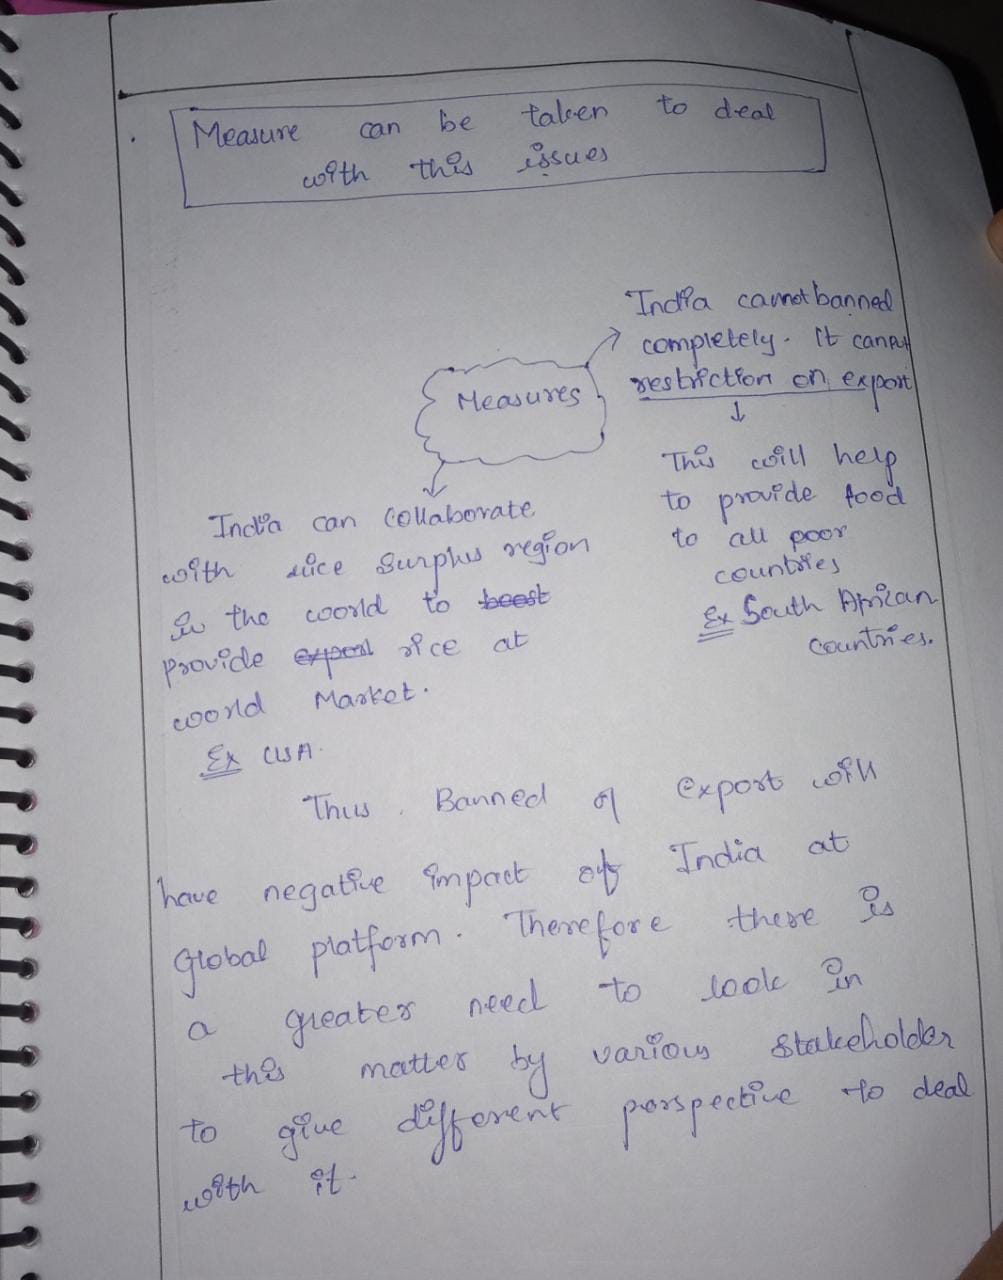 Measure can be taken to deal
with this issues
India cannot banned
completely. It can put
restriction on export
↓
Measures
This will help
to provide food
to all poor
countries
Ex South African
countries.
India can collaborate
with rice surplus region
in the woorld to boost
provide export rice at
woorld Market.
Ex USA.
Thus, Banned of export will
have negative impact of India at
Global platform. Therefore there is
a greater need to look in
this matter by various stakeholder
to give different perspective to deal
with it.